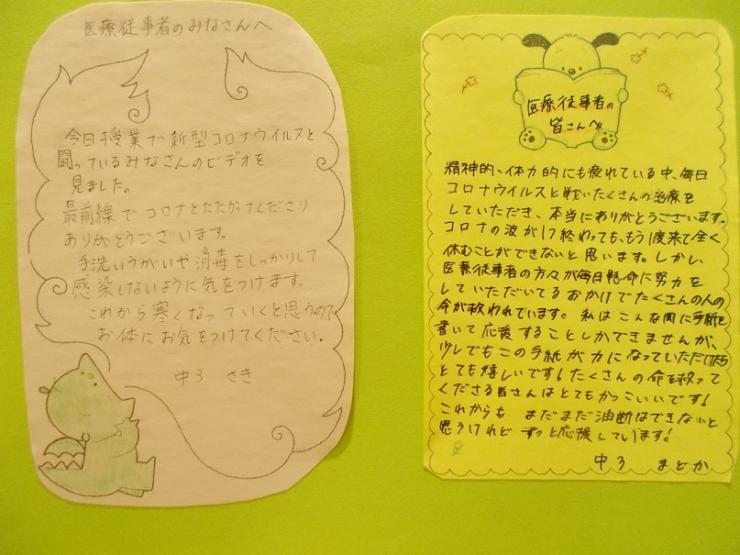 医療従事者のみなさんへ
今日授業で新型コロナウイルスと
闘っているみなさんのビデオを
見ました。
最前線でコロナとたたかってくださり
ありがとうございます。
手洗いうがいや消毒をしっかりして
感染しないように気をつけます。
これから寒くなっていくと思うので
お体にお気をつけてください。
中3 さき
医療従事者の
皆さんへ
精神的、体力的にも疲れている中、毎日
コロナウイルスと戦いたくさんの治療を
していただき、本当にありがとうございます。
コロナの波が1つ終わっても、もう1度来て全く
休むことができないと思います。しかし、
医療従事者の方々が毎日懸命に努力を
していただいてるおかげでたくさんの人の
命が救われています。私はこんな風に手紙を
書いて応援することしかできませんが、
少しでもこの手紙が力になっていただけたら
とても嬉しいです!たくさんの命を救って
くださる皆さんはとてもかっこいいです!
これからも まだまだ油断はできないと
思うけれど ずっと応援しています!
中3 まどか